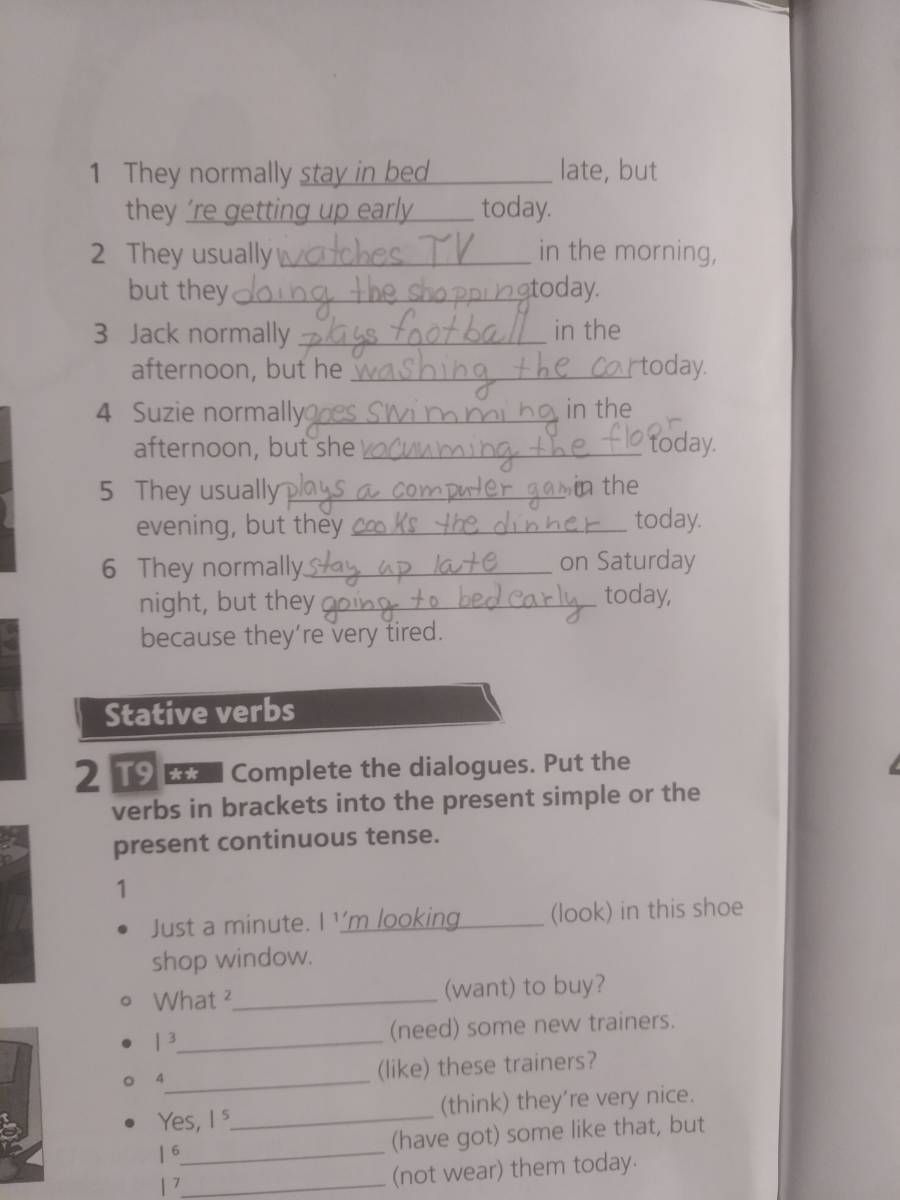 1 They normally stay in bed late, but
they 're getting up early today.
2 They usually watches TV in the morning,
but they doing the shopping today.
3 Jack normally plays football in the
afternoon, but he washing the car today.
4 Suzie normally goes swimming in the
afternoon, but she vacuuming the floor today.
5 They usually plays a computer game in the
evening, but they cooks the dinner today.
6 They normally stay up late on Saturday
night, but they going to bed early today,
because they're very tired.
Stative verbs
2 T9 ** Complete the dialogues. Put the
verbs in brackets into the present simple or the
present continuous tense.
1
• Just a minute. I ¹'m looking (look) in this shoe
shop window.
○ What ²____________ (want) to buy?
• I ³____________ (need) some new trainers.
○ ⁴____________ (like) these trainers?
• Yes, I ⁵____________ (think) they're very nice.
I ⁶____________ (have got) some like that, but
I ⁷____________ (not wear) them today.